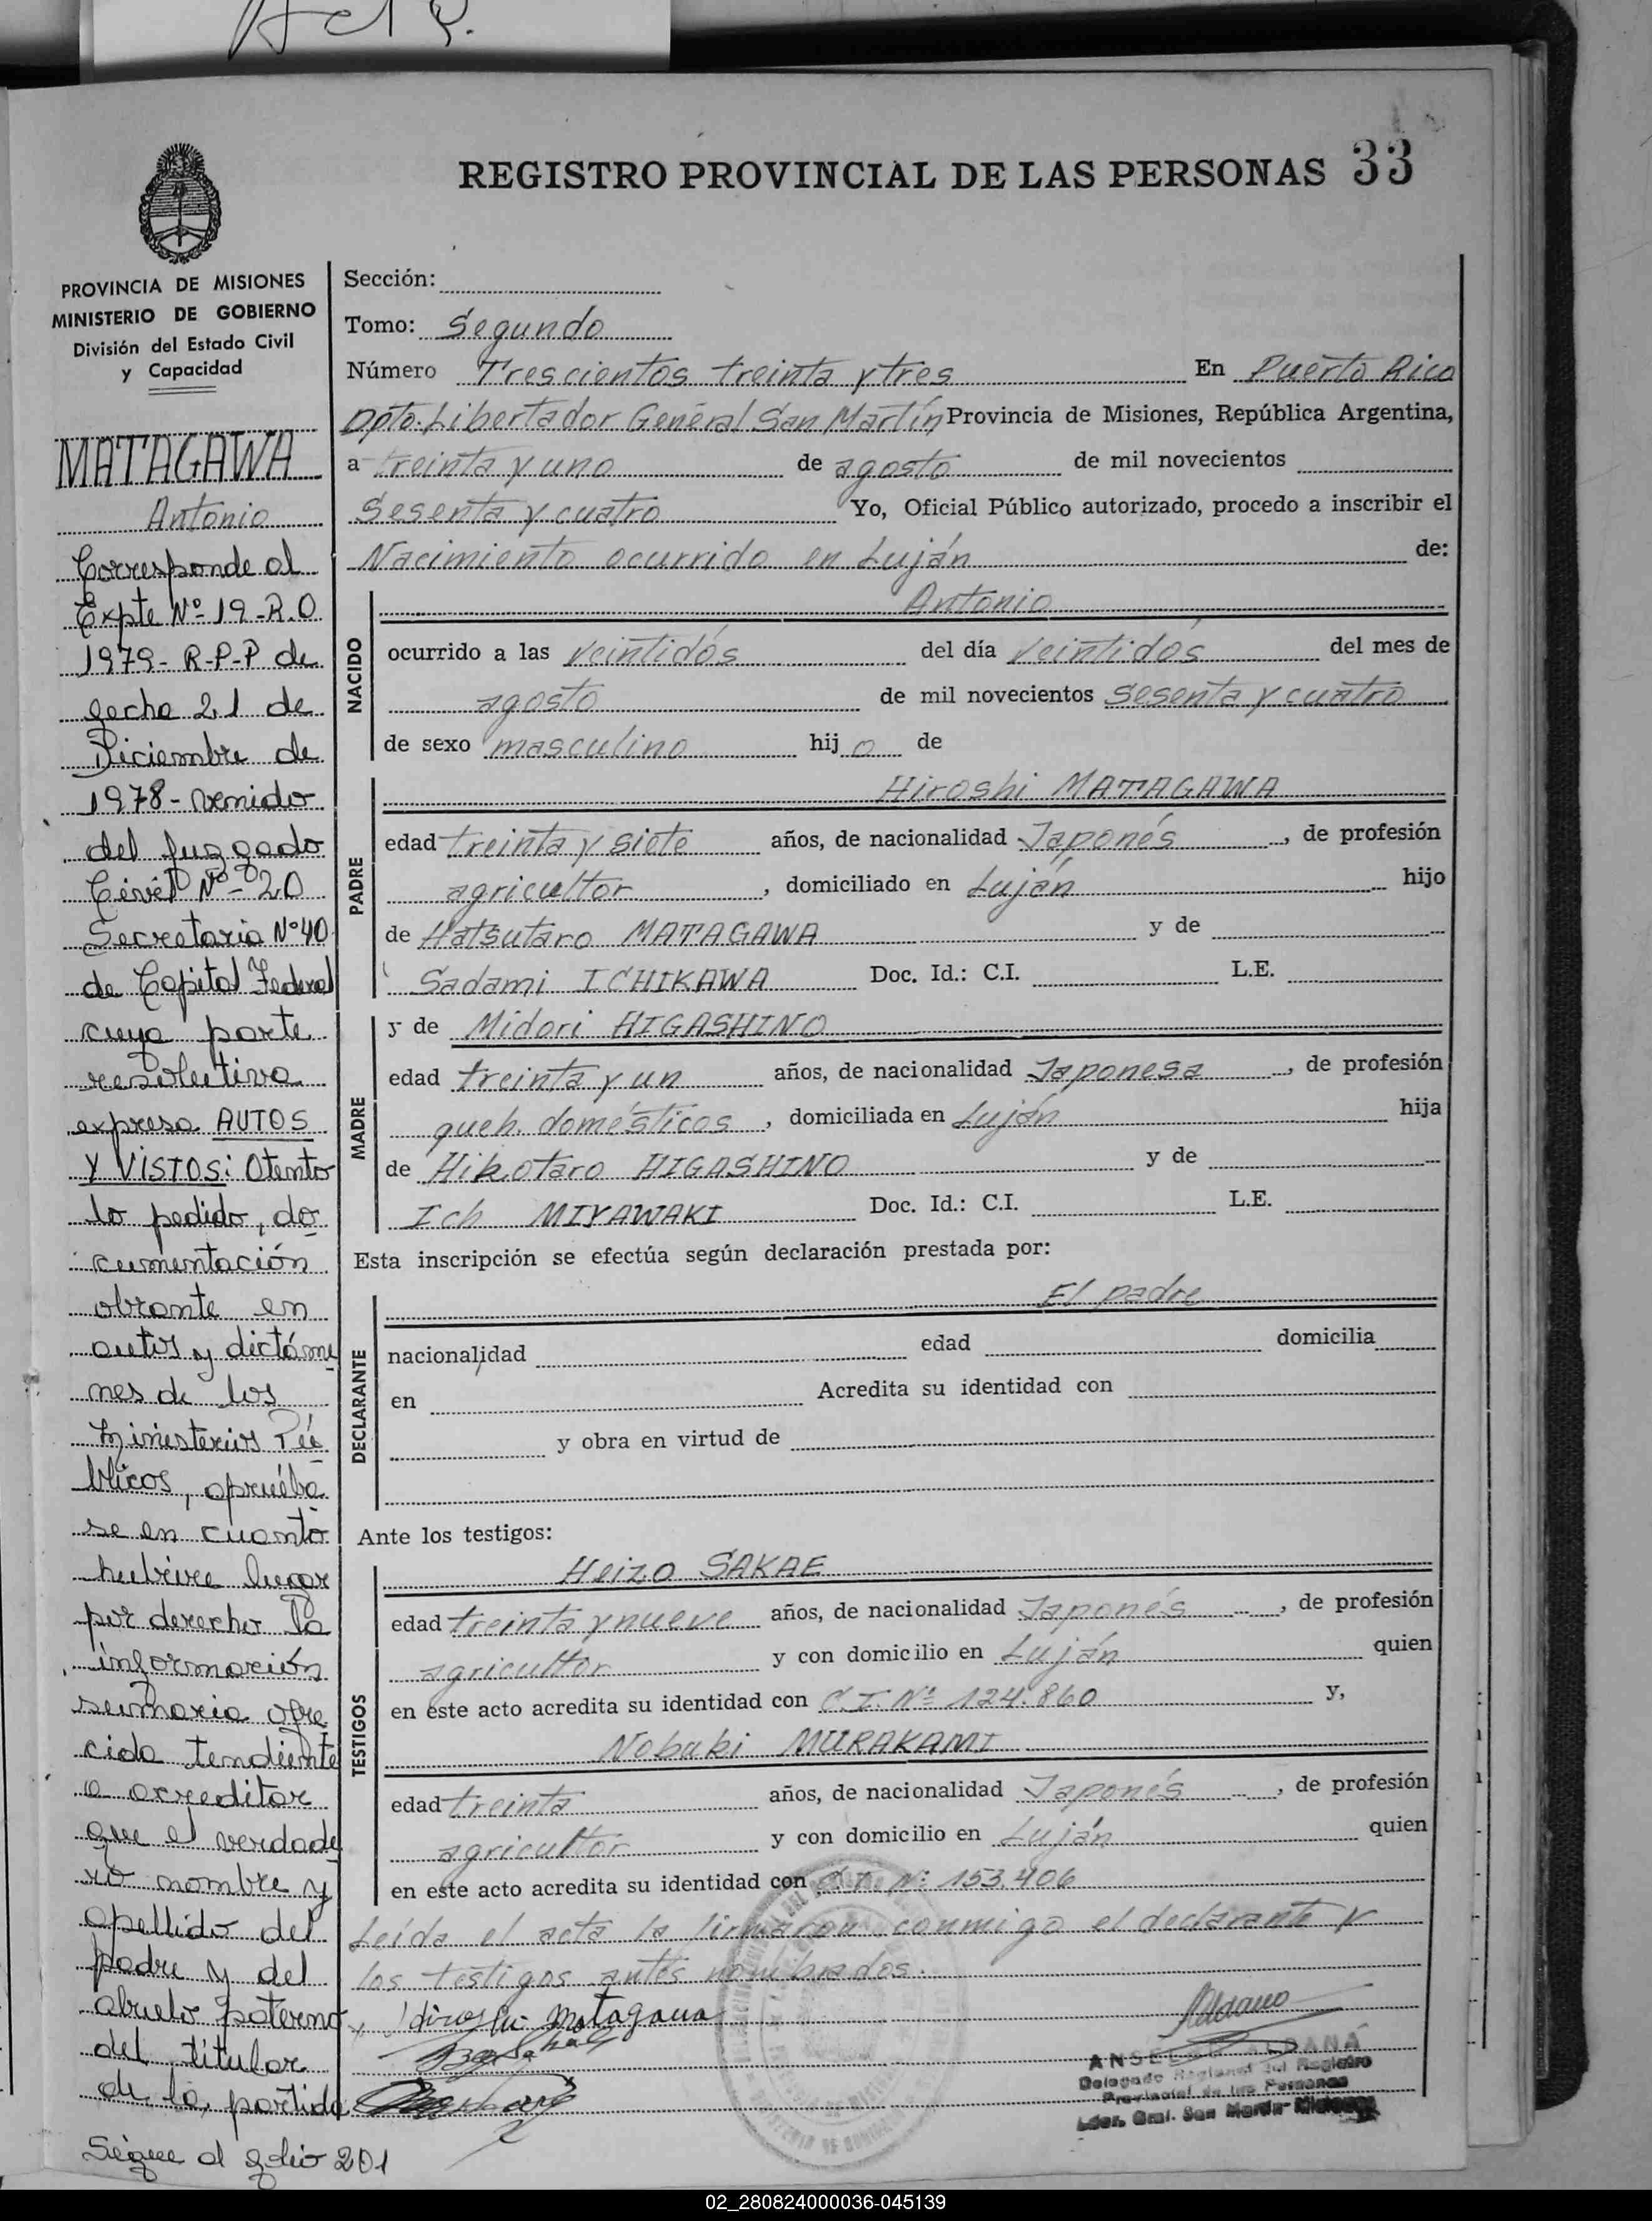 Acta.
REGISTRO PROVINCIAL DE LAS PERSONAS 33
PROVINCIA DE MISIONES
MINISTERIO DE GOBIERNO
División del Estado Civil
y Capacidad
MATAGAWA
Antonio
Corresponde al
Expte Nº 19-R.O
1979- R-P-P de
fecha 21 de
Diciembre de
1978- venido
del Juzgado
Civil Nº- 20
Secretaria Nº40
de Capital Federal
cuya parte
resolutiva
expresa AUTOS
Y VISTOS: Atento
lo pedido, do
cumentación
obrante en
autos y dictáme
nes de los
Ministerios Pú
blicos, apruéba
se en cuanto
hubiere lugar
por derecho la
información
sumaria ofre
cida tendiente
a acreditar
que el verdade
ro nombre y
apellido del
padre y del
abuelo paterno
del titular
de la partida
Sigue al folio 201
Sección:
Tomo: Segundo
Número Trescientos treinta y tres En Puerto Rico
Dpto. Libertador General San Martín Provincia de Misiones, República Argentina,
a treinta y uno de agosto de mil novecientos
Sesenta y cuatro Yo, Oficial Público autorizado, procedo a inscribir el
Nacimiento ocurrido en Luján de:
NACIDO
Antonio
ocurrido a las veintidós del día veintidós del mes de
agosto de mil novecientos sesenta y cuatro
de sexo masculino hij o de
PADRE
Hiroshi MATAGAWA
edad treinta y siete años, de nacionalidad Japonés, de profesión
agricultor, domiciliado en Luján hijo
de Hatsutaro MATAGAWA y de
Sadami ICHIKAWA Doc. Id.: C.I. L.E.
MADRE
y de Midori HIGASHINO
edad treinta y un años, de nacionalidad Japonesa, de profesión
queh. domésticos, domiciliada en Luján hija
de Hikotaro HIGASHINO y de
Ich MIYAWAKI Doc. Id.: C.I. L.E.
Esta inscripción se efectúa según declaración prestada por:
DECLARANTE
El padre
nacionalidad edad domicilia
en Acredita su identidad con
y obra en virtud de
Ante los testigos:
TESTIGOS
Heizo SAKAE
edad treinta y nueve años, de nacionalidad Japonés, de profesión
agricultor y con domicilio en Luján quien
en este acto acredita su identidad con C.I. Nº 124.860 y,
Nobuki MURAKAMI
edad treinta años, de nacionalidad Japonés, de profesión
agricultor y con domicilio en Luján quien
en este acto acredita su identidad con C.I. Nº 153.406
Leída el acta la firmaron conmigo el declarante y
los testigos antes nombrados.
Hiroshi Matagawa
Aldana
ALDANA
Delegado Regional del Registro
Provincial de las Personas
Lder. Gral. San Martín- Misiones
02_280824000036-045139